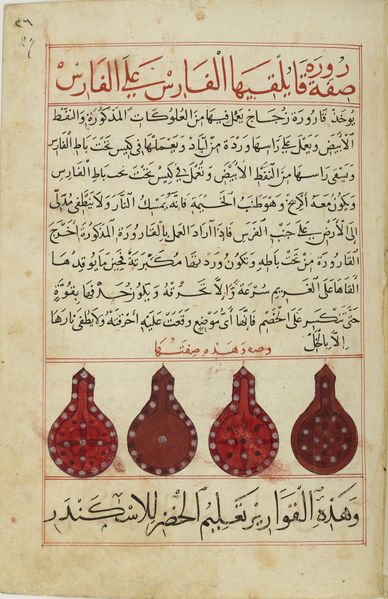 ٣٦
27
صفة قارورة يلقيها الفارس على الفارس
يوخذ قارورة زجاج يعمل فيها من العلوكات المذكورة والنفط
الأبيض ويعمل على راسها وردة من لباد ويعملها في كيس تحت باط الفارس
ويسقى راسها من النفط الأبيض وتعمل في كيس تحت باط الفارس
ويكون معه وهو طيب فانه يمسك النار ولا يطفى
الى الأرض على جنب الفرس فاذا اراد العمل بالقارورة المذكورة اخرج
القارورة من تحت باطه وتكون ورد تها مكبرتة فحين ما يوقدها
القاها على الغريم سرعة والا تحرقه ويكون بقوة
حتى تنكسر على الخصم فانها أى موضع وقعت عليه أحرقته ولا يطفى نارها
إلا بالخل وهذه صفتها
وهذه القوارير تعليم الخضر للاسكندر